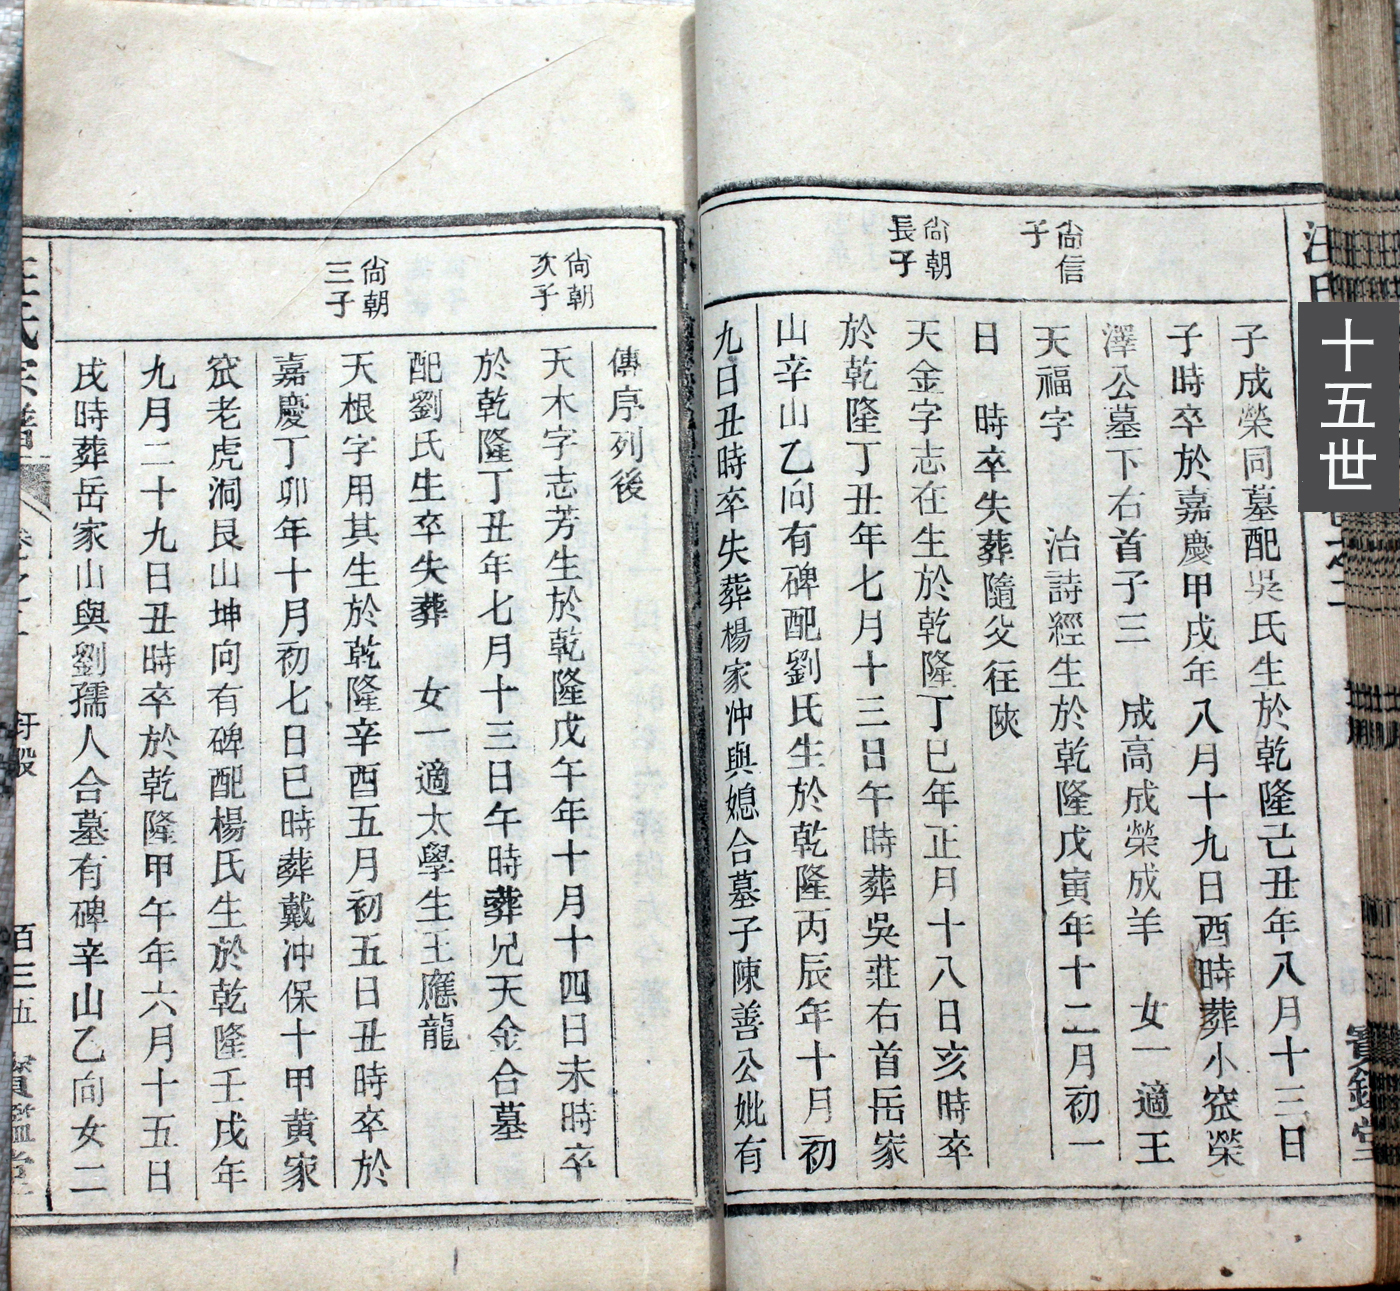 十五世
子成榮同墓配吳氏生於乾隆己丑年八月十三日
子時卒於嘉慶甲戌年八月十九日酉時葬小窊榮
澤公墓下右首子三 成高成榮成羊 女一適王
尚信
子
天福字 治詩經生於乾隆戊寅年十二月初一
日 時卒失葬隨父往陝
尙朝
長子
天金字志在生於乾隆丁巳年正月十八日亥時卒
於乾隆丁丑年七月十三日午時葬吳莊右首岳家
山辛山乙向有碑配劉氏生於乾隆丙辰年十月初
九日丑時卒失葬楊家冲與媳合墓子陳善公妣有
傳序列後
尙朝
次子
天木字志芳生於乾隆戊午年十月十四日未時卒
於乾隆丁丑年七月十三日午時葬兄天金合墓
配劉氏生卒失葬 女一適太學生王應龍
尙朝
三子
天根字用其生於乾隆辛酉五月初五日丑時卒於
嘉慶丁卯年十月初七日巳時葬戴冲保十甲黄家
窊老虎洞艮山坤向有碑配楊氏生於乾隆壬戌年
九月二十九日丑時卒於乾隆甲午年六月十五日
戌時葬岳家山與劉孺人合墓有碑辛山乙向女二
汪氏宗譜
百三五 寶鑑堂